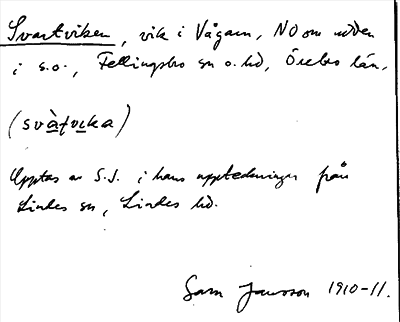 Svartviken, vik i Vågarn, NO om udden
i s.o., Fellingsbro sn o. hd, Örebro län.
(svàtvika)
Upptas av S.J. i hans uppteckningar från
Lindes sn, Lindes hd.
Sam Jansson 1910-11.